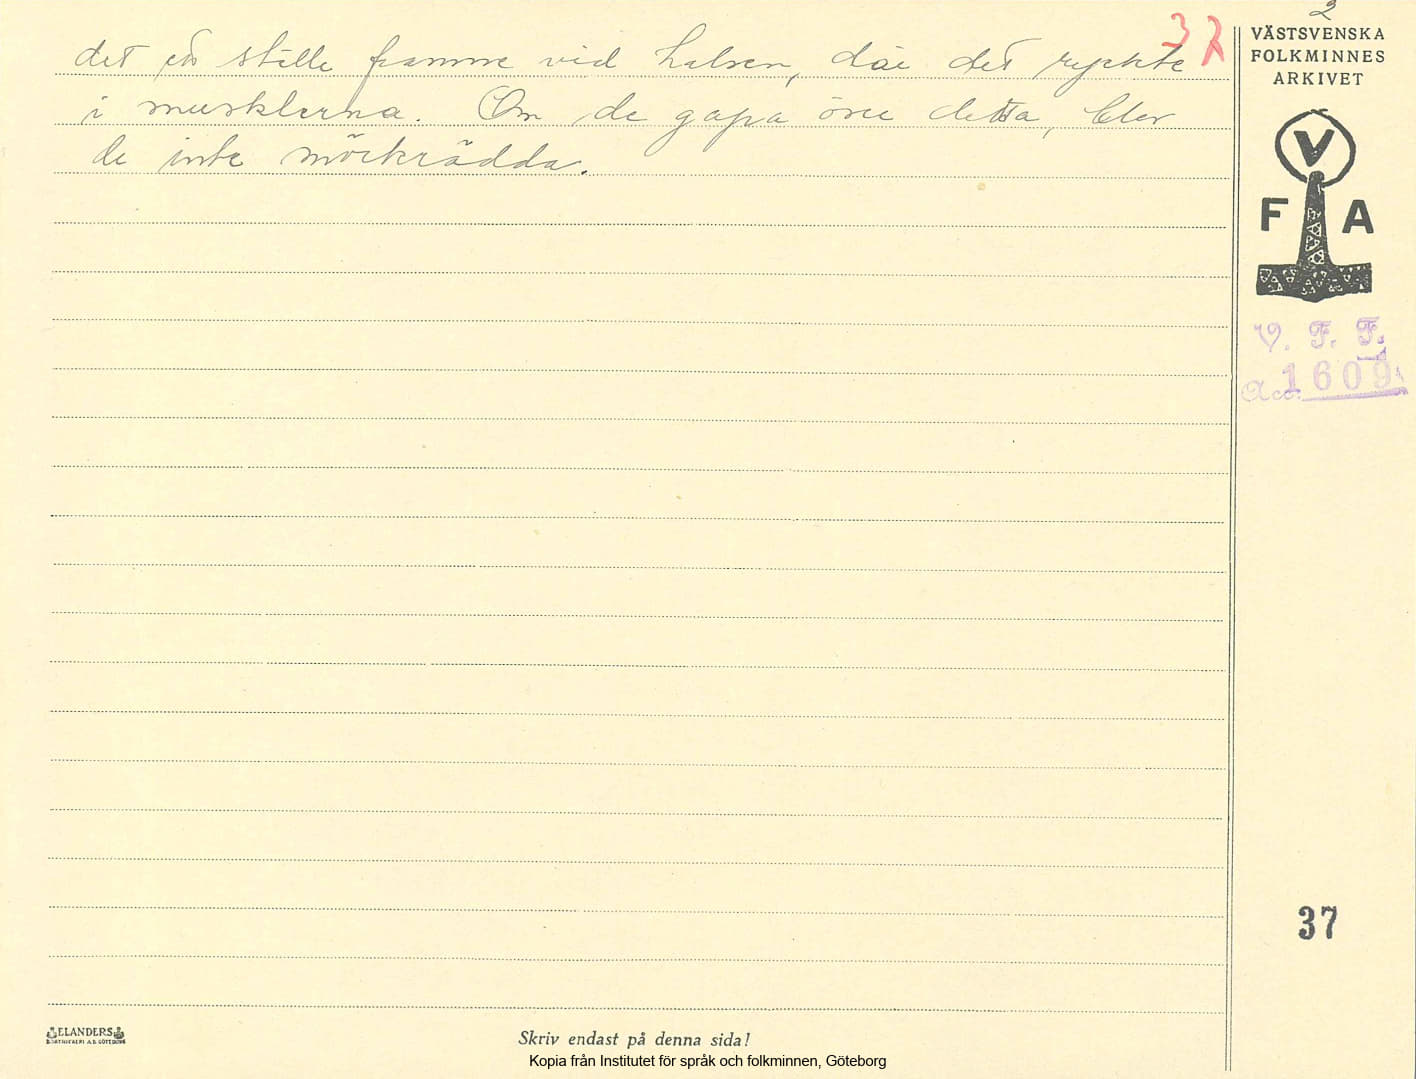 det ett ställe framme vid halsen, där det ryckte
i musklerna. Om de gapa över detta, blev
de inte mörkrädda.
2
VÄSTSVENSKA
FOLKMINNES
ARKIVET
V
F A
V. F. F.
Acc. 1609
37
ELANDERS
BOKTRYCKERI A.B. GÖTEBORG
Skriv endast på denna sida!
Kopia från Institutet för språk och folkminnen, Göteborg